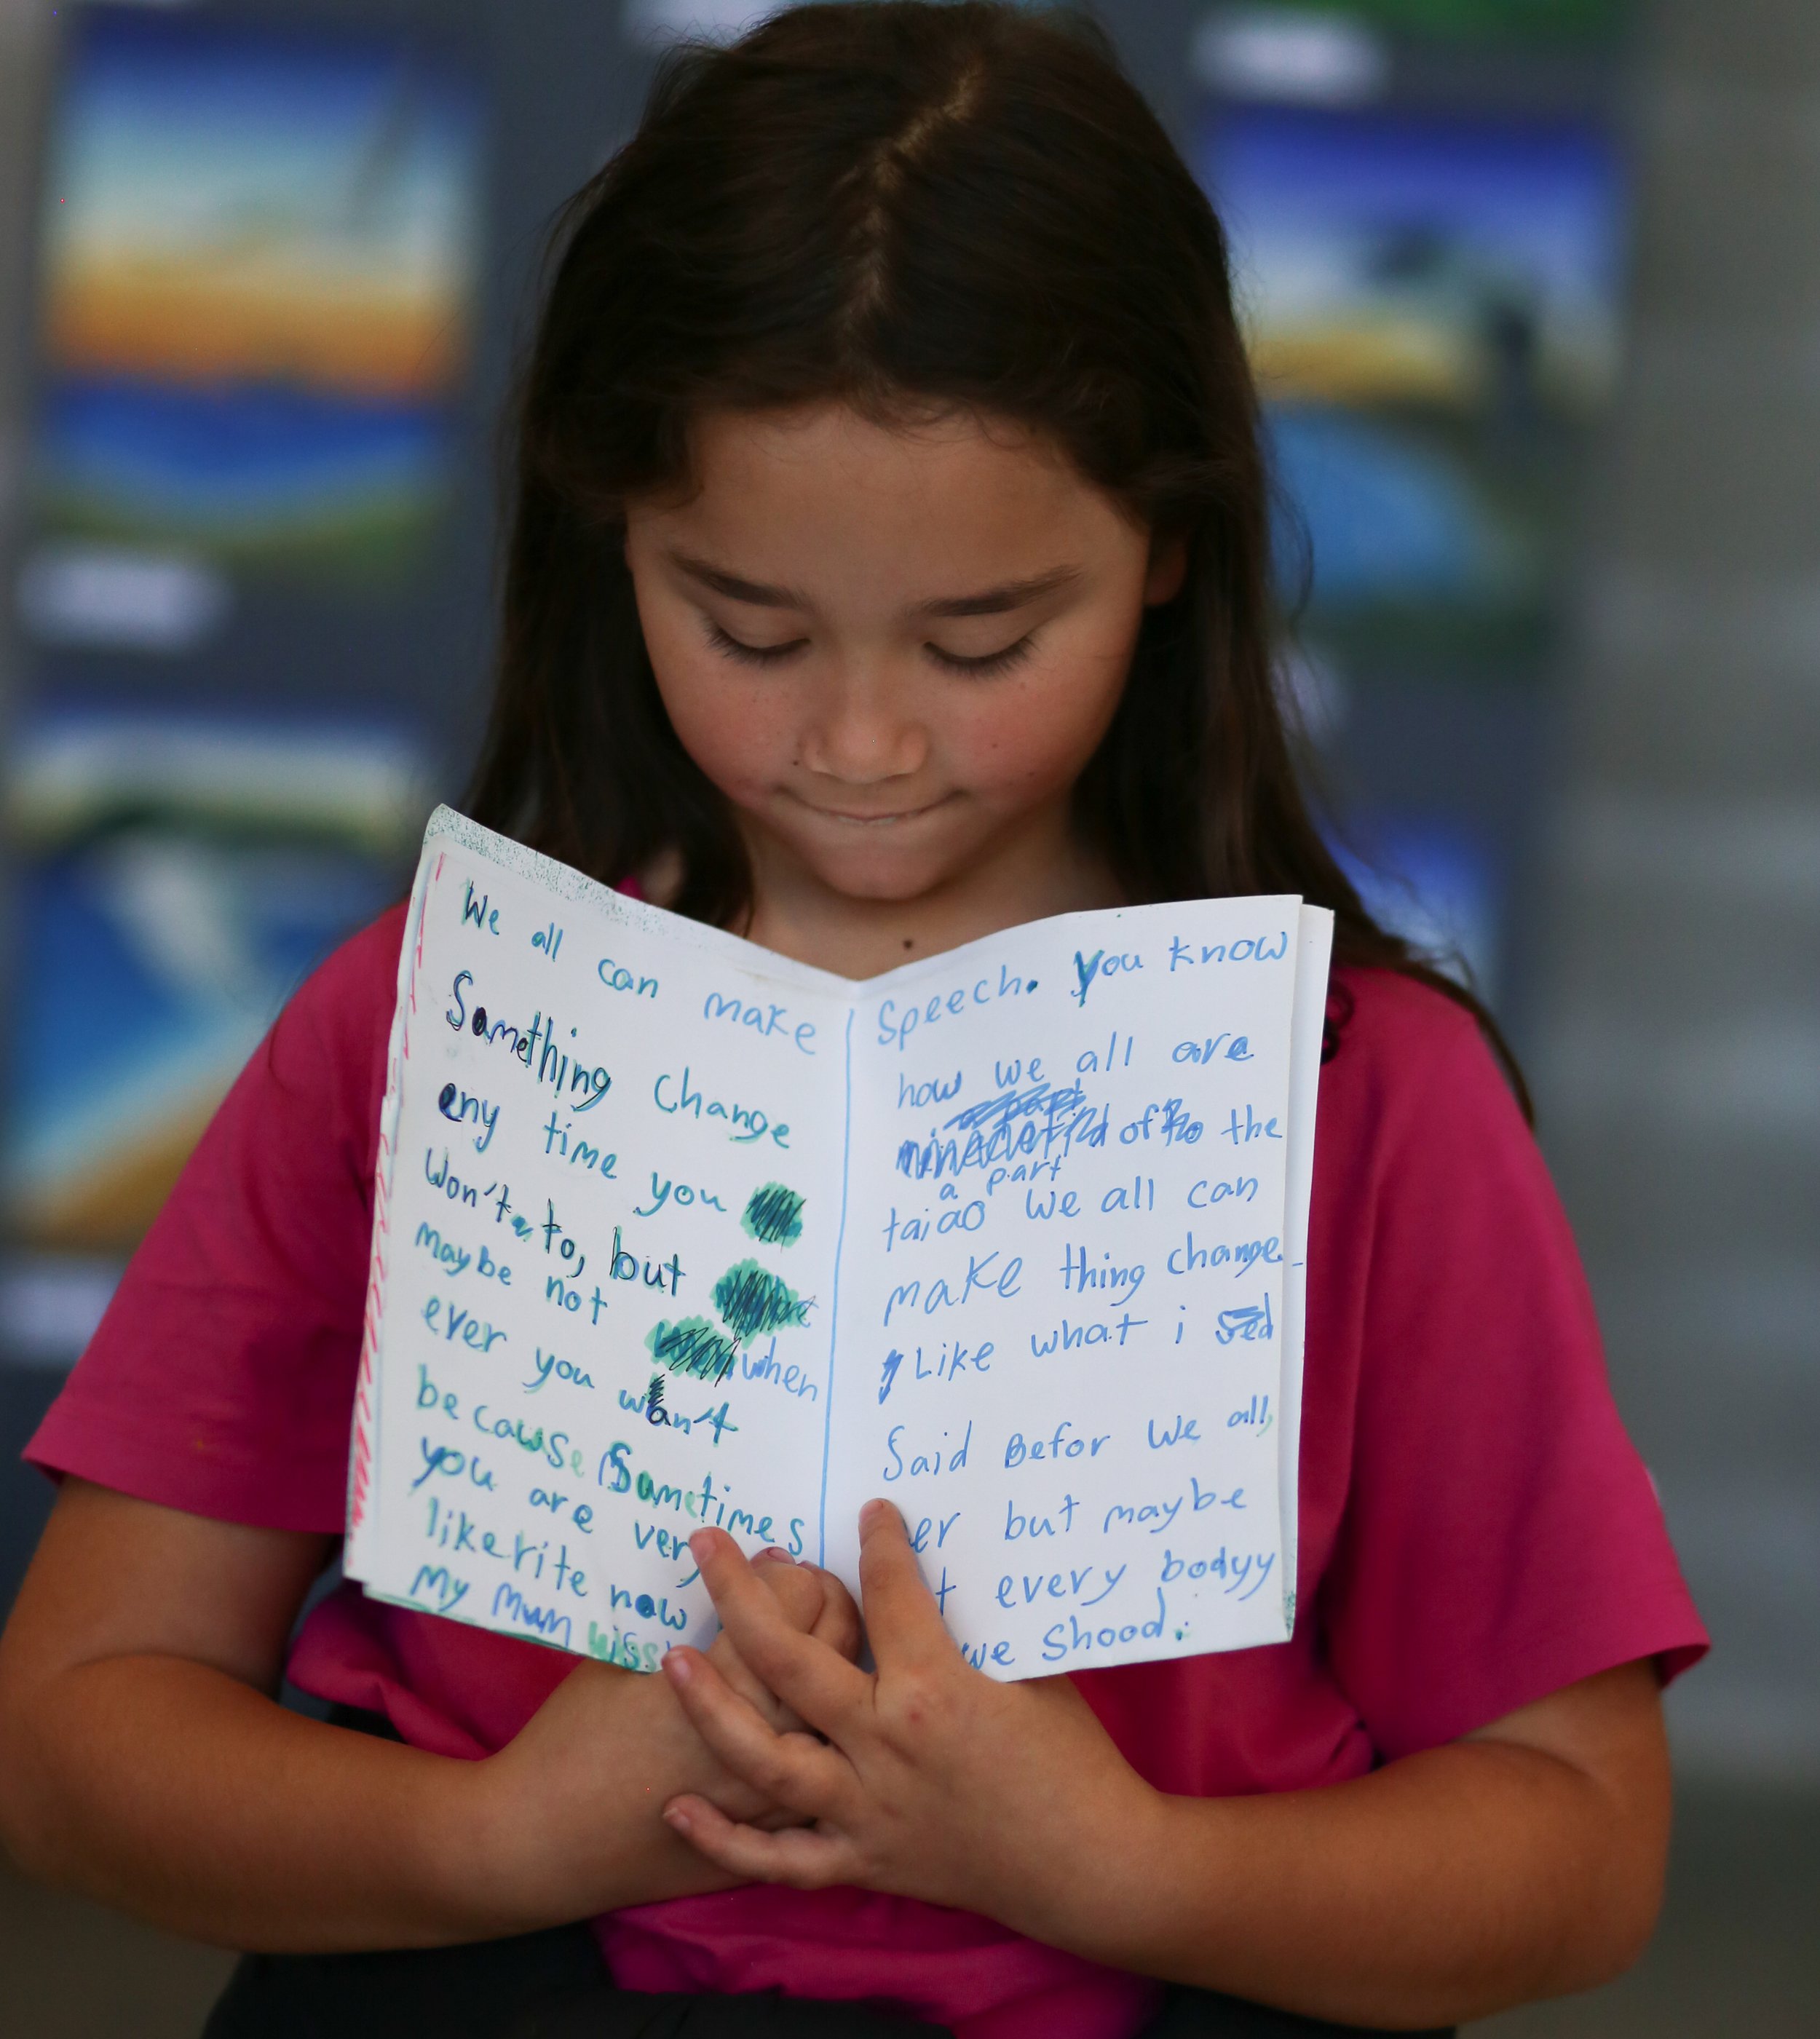 We all can make
Something change
eny time you
Won't to, but
maybe not when
ever you want
because Sumetimes
you are very
like rite now
My mun
Speech. You know
how we all are
a part
of to the
taiao we all can
make thing change
Like what i
Said Befor we all
er but maybe
t every bodyy
we Shood.